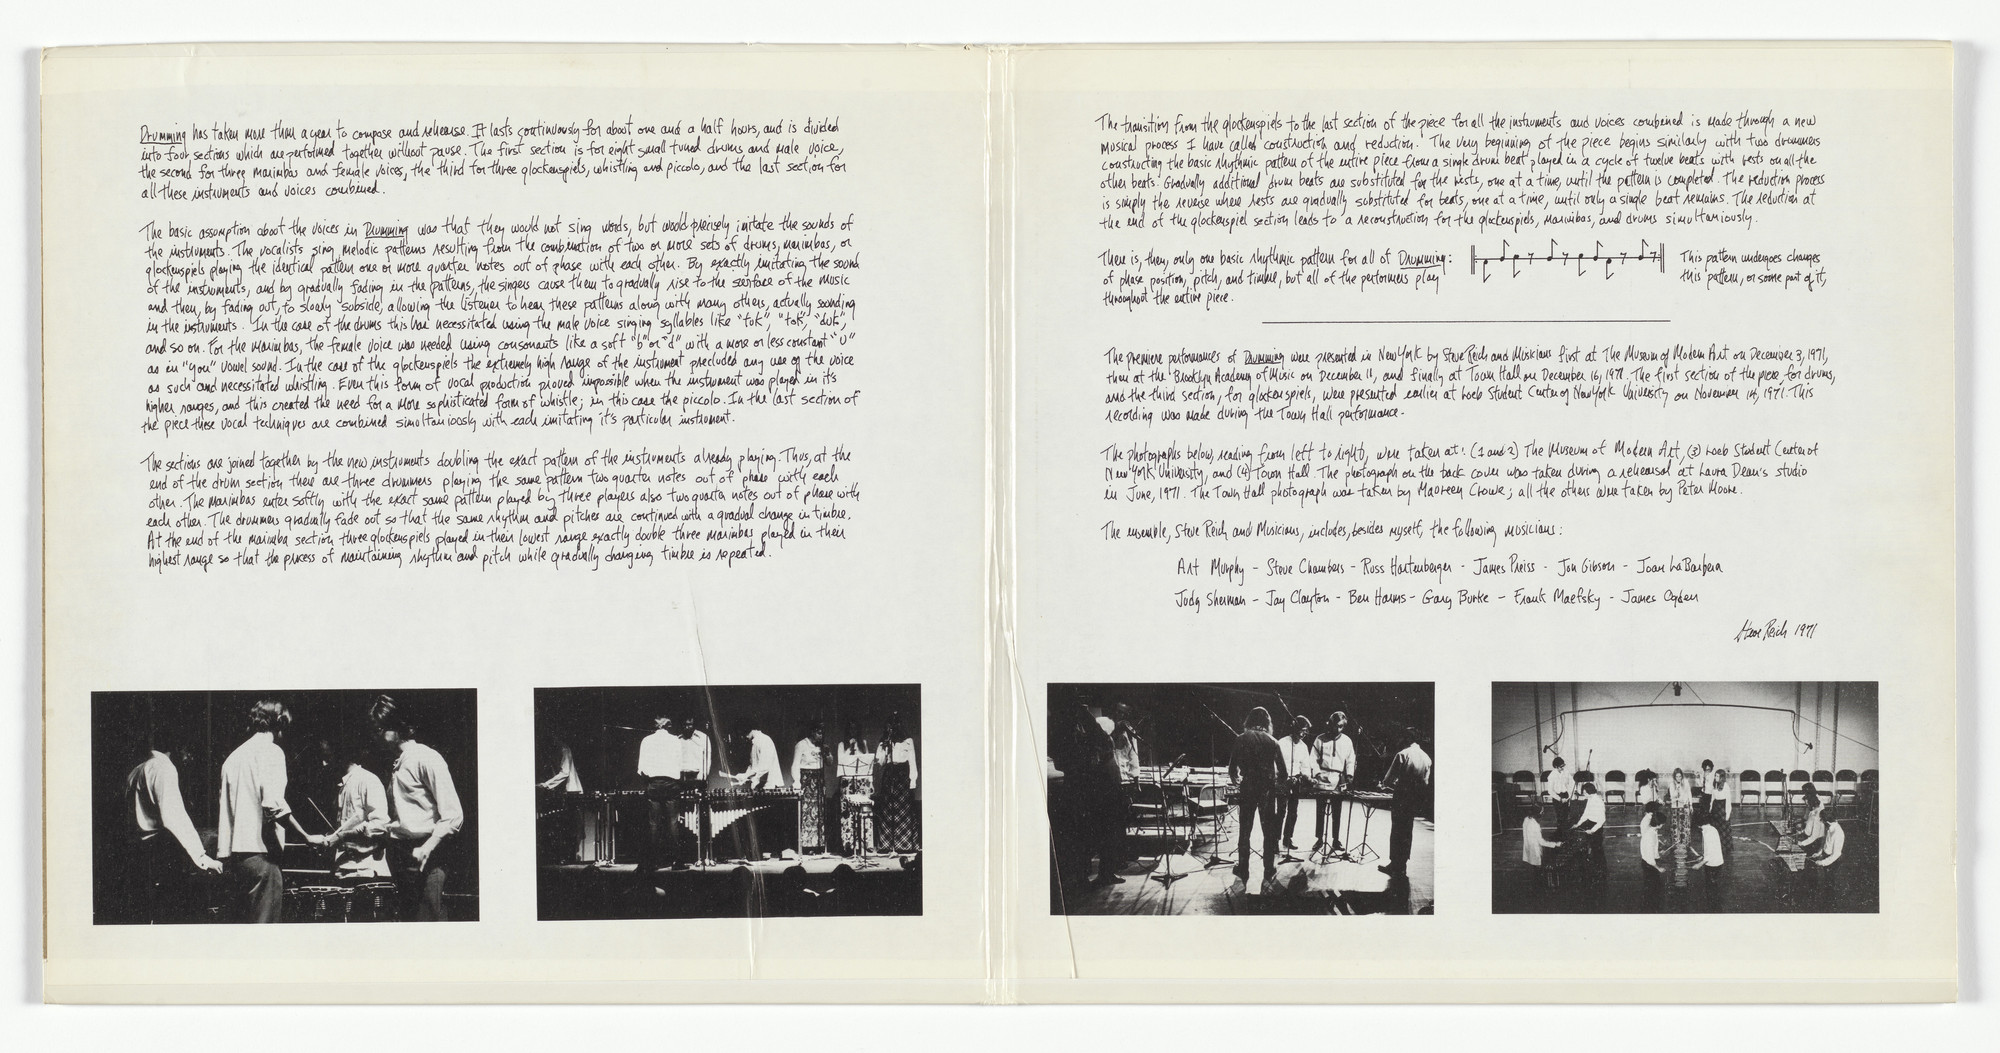 Drumming has taken more than a year to compose and rehearse. It lasts continuously for about one and a half hours, and is divided
into four sections which are performed together without pause. The first section is for eight small tuned drums and male voice,
the second for three marimbas and female voices, the third for three glockenspiels, whistling and piccolo, and the last section for
all these instruments and voices combined.
The basic assumption about the voices in Drumming was that they would not sing words, but would precisely imitate the sounds of
the instruments. The vocalists sing melodic patterns resulting from the combination of two or more sets of drums, marimbas, or
glockenspiels playing the identical pattern one or more quarter notes out of phase with each other. By exactly imitating the sound
of the instruments, and by gradually fading in the patterns, the singers cause them to gradually rise to the surface of the music
and then, by fading out, to slowly subside, allowing the listener to hear these patterns along with many others, actually sounding
in the instruments. In the case of the drums this has necessitated using the male voice singing syllables like "tuk", "tok", "duk",
and so on. For the marimbas, the female voice was needed using consonants like a soft "b" or "d" with a more or less constant "u"
as in "you" vowel sound. In the case of the glockenspiels the extremely high range of the instrument precluded any use of the voice
as such and necessitated whistling. Even this form of vocal production proved impossible when the instrument was played in it's
higher ranges, and this created the need for a more sophisticated form of whistle; in this case the piccolo. In the last section of
the piece these vocal techniques are combined simultaniously with each imitating it's particular instrument.
The sections are joined together by the new instruments doubling the exact pattern of the instruments already playing. Thus, at the
end of the drum section there are three drummers playing the same pattern two quarter notes out of phase with each
other. The marimbas enter softly with the exact same pattern played by three players also two quarter notes out of phase with
each other. The drummers gradually fade out so that the same rhythm and pitches are continued with a gradual change in timbre.
At the end of the marimba section three glockenspiels played in their lowest range exactly double three marimbas played in their
highest range so that the process of maintaining rhythm and pitch while gradually changing timbre is repeated.
The transition from the glockenspiels to the last section of the piece for all the instruments and voices combined is made through a new
musical process I have called construction and reduction. The very beginning of the piece begins similarly with two drummers
constructing the basic rhythmic pattern of the entire piece from a single drum beat played in a cycle of twelve beats with rests on all the
other beats. Gradually additional drum beats are substituted for the rests, one at a time, until the pattern is completed. The reduction process
is simply the reverse where rests are gradually substituted for beats, one at a time, until only a single beat remains. The reduction at
the end of the glockenspiel section leads to a reconstruction for the glockenspiels, marimbas, and drums simultaniously.
There is, then, only one basic rhythmic pattern for all of Drumming: This pattern undergoes changes
of phase position, pitch, and timbre, but all of the performers play this pattern, or some part of it,
throughout the entire piece.
The premiere performances of Drumming were presented in New York by Steve Reich and Musicians first at The Museum of Modern Art on December 3, 1971,
then at the Brooklyn Academy of Music on December 11, and finally at Town Hall on December 16, 1971. The first section of the piece, for drums,
and the third section, for glockenspiels, were presented earlier at Loeb Student Center of New York University on November 14, 1971. This
recording was made during the Town Hall performance.
The photographs below, reading from left to right, were taken at: (1 and 2) The Museum of Modern Art, (3) Loeb Student Center of
New York University, and (4) Town Hall. The photograph on the back cover was taken during a rehearsal at Laura Dean's studio
in June, 1971. The Town Hall photograph was taken by Maureen Crowe; all the others were taken by Peter Moore.
The ensemble, Steve Reich and Musicians, includes, besides myself, the following musicians:
Art Murphy - Steve Chambers - Russ Hartenberger - James Preiss - Jon Gibson - Joan LaBarbera
Judy Sherman - Jay Clayton - Ben Harms - Gary Burke - Frank Maefsky - James Ogden
Steve Reich 1971